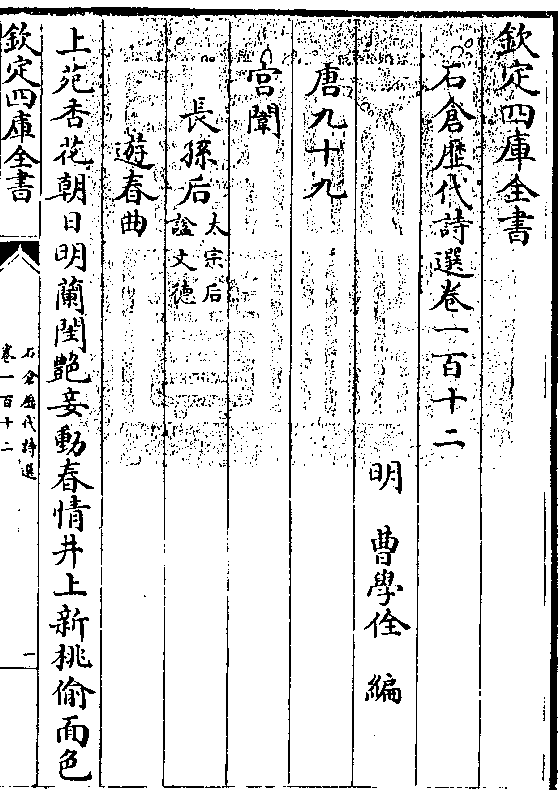 欽定四庫全書
石倉歷代詩選卷一百十二
明 曹學佺 編
唐九十九
宮闈
長孫后 太宗后
諡文德
遊春曲
上苑杏花朝日明蘭閨艶妾動春情井上新桃偷面色
欽定四庫全書
石倉歷代詩選
卷一百十二
一